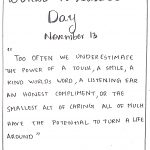 Day
November 13
"Too often we underestimate
the power of a touch, a smile, a
kind word, a listening ear
an honest compliment, or the
smallest act of caring all of which
have the potential to turn a life
around"